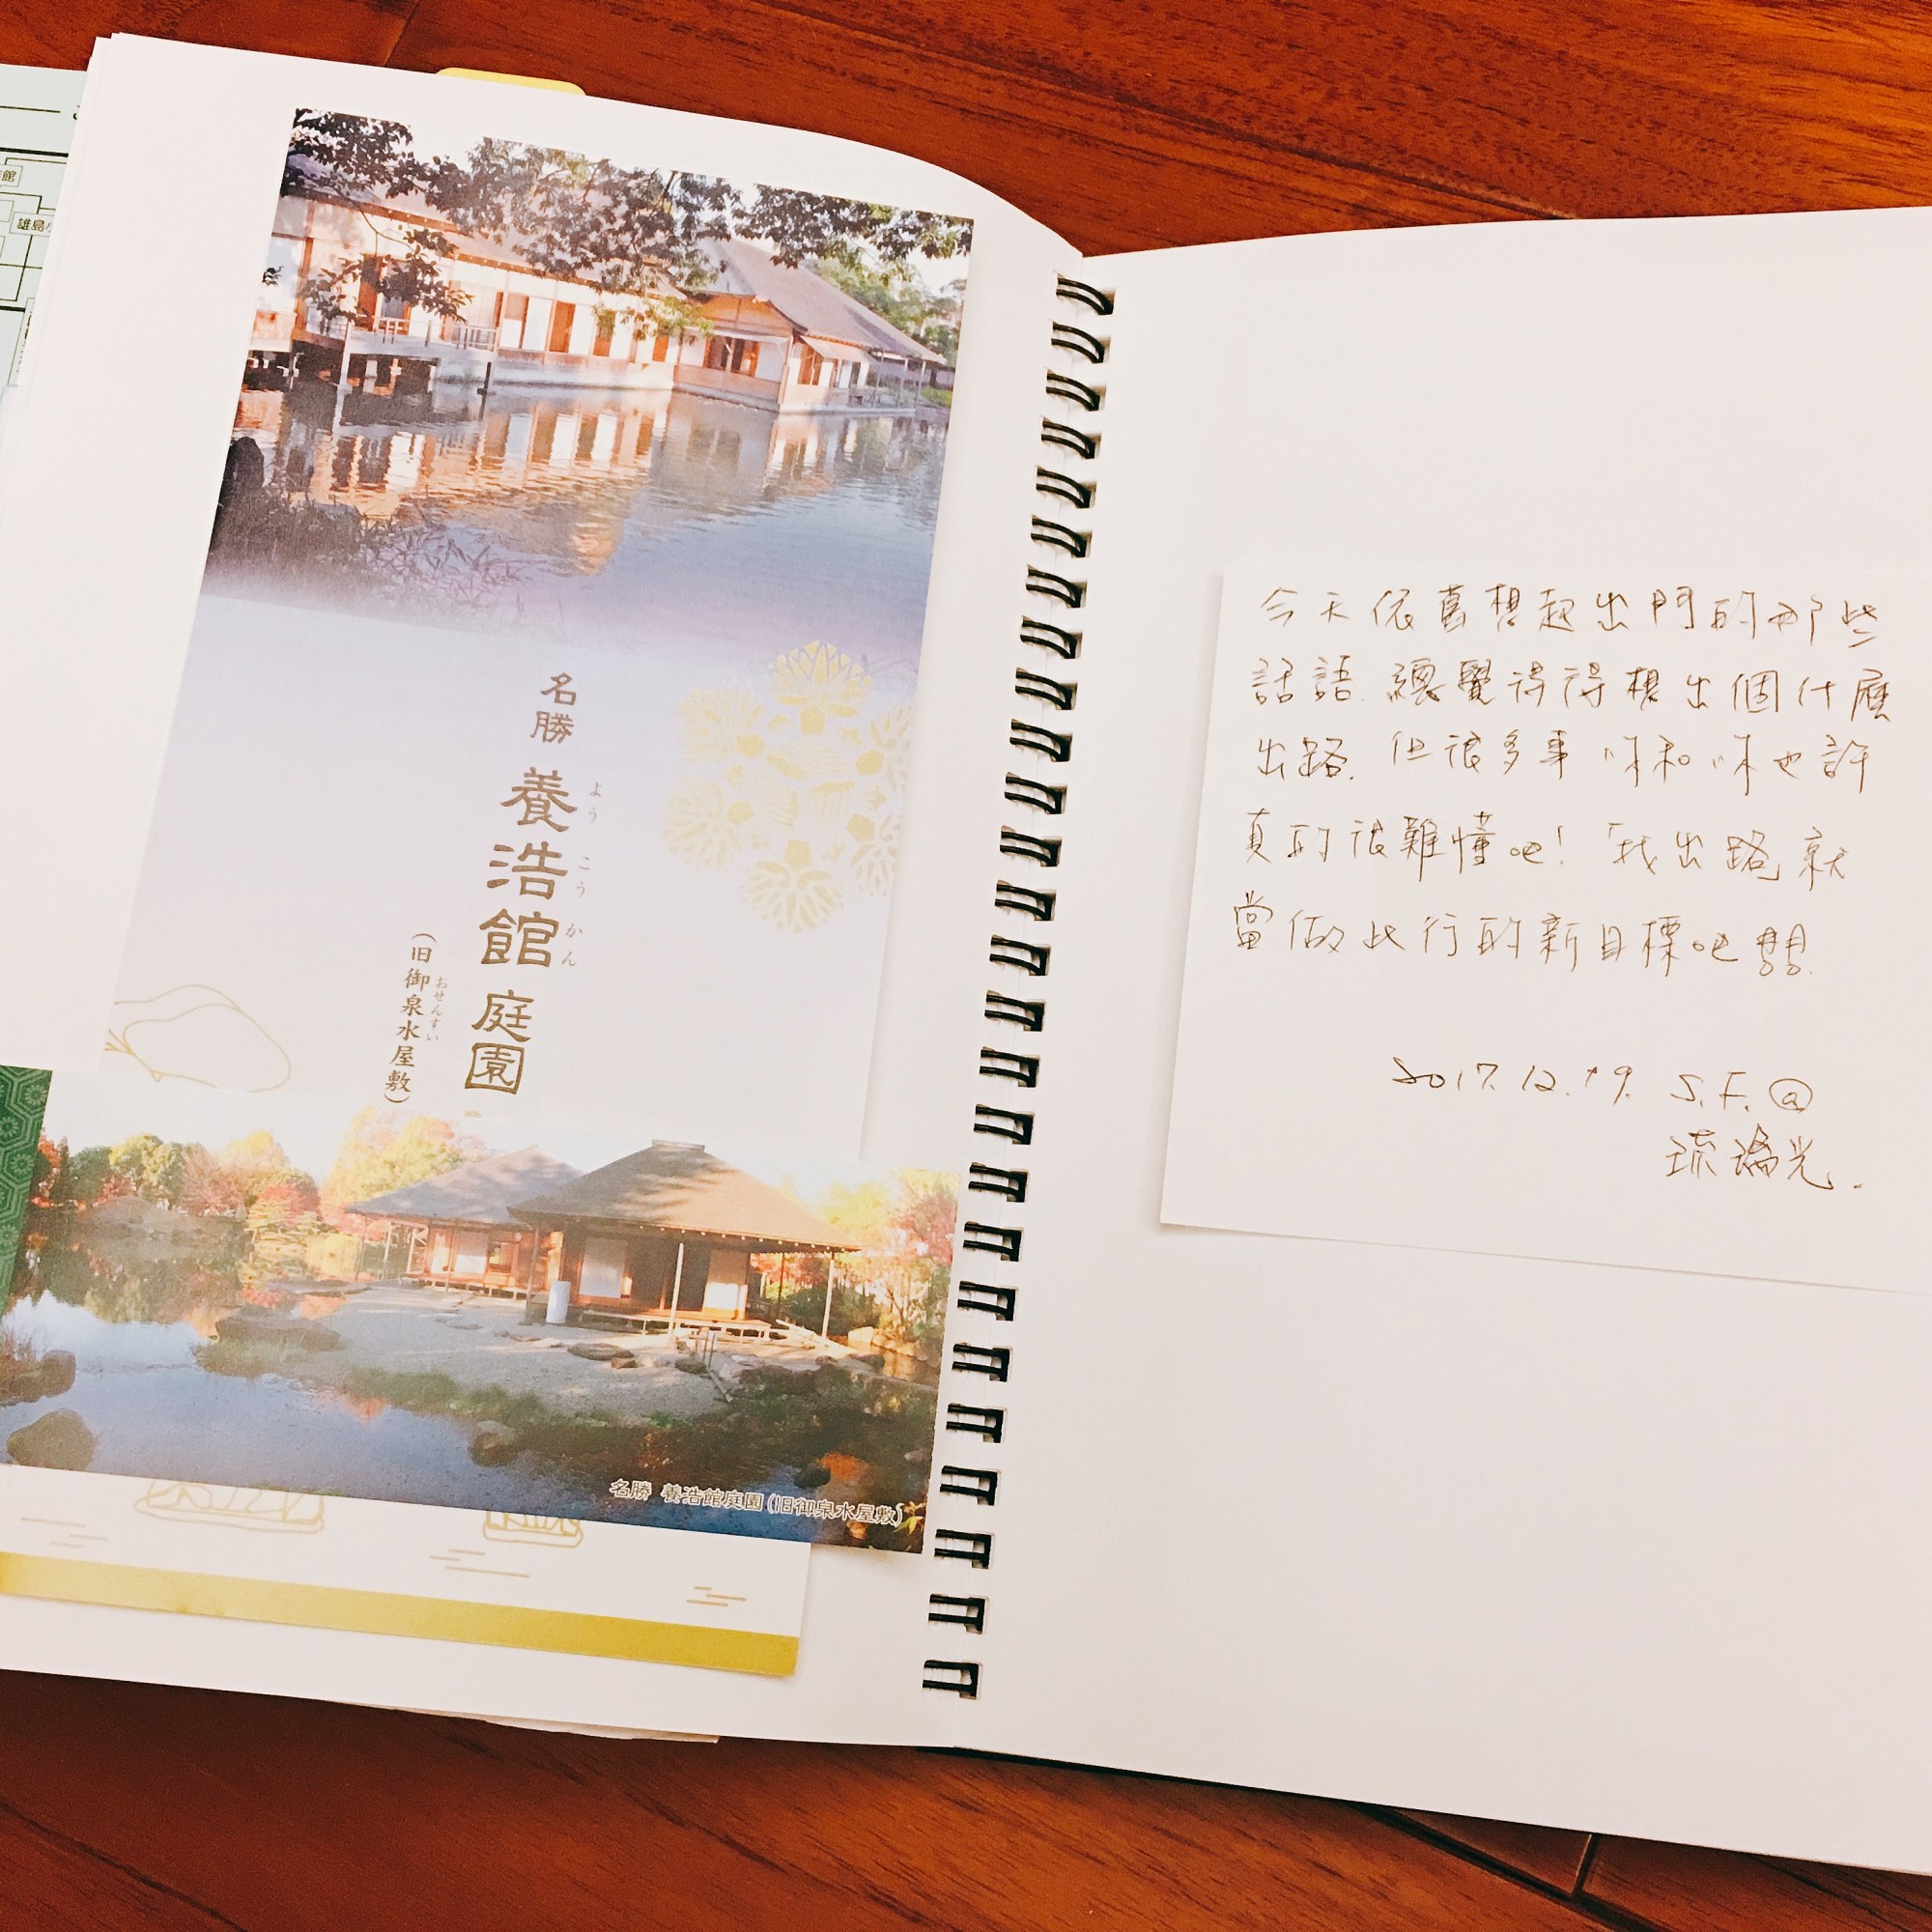 館
雄島
名勝
養浩館
ようこうかん
庭園
(旧御泉水屋敷)
おせんすい
名勝 養浩館庭園(旧御泉水屋敷)
今天依舊想起出門的那些
話語.總覺得得想出個什麼
出路.但很多事 味和味也許
真的很難懂吧!「找出路」就
當做此行的新目標吧
2017.12.19. S.F.@
琉璃光.